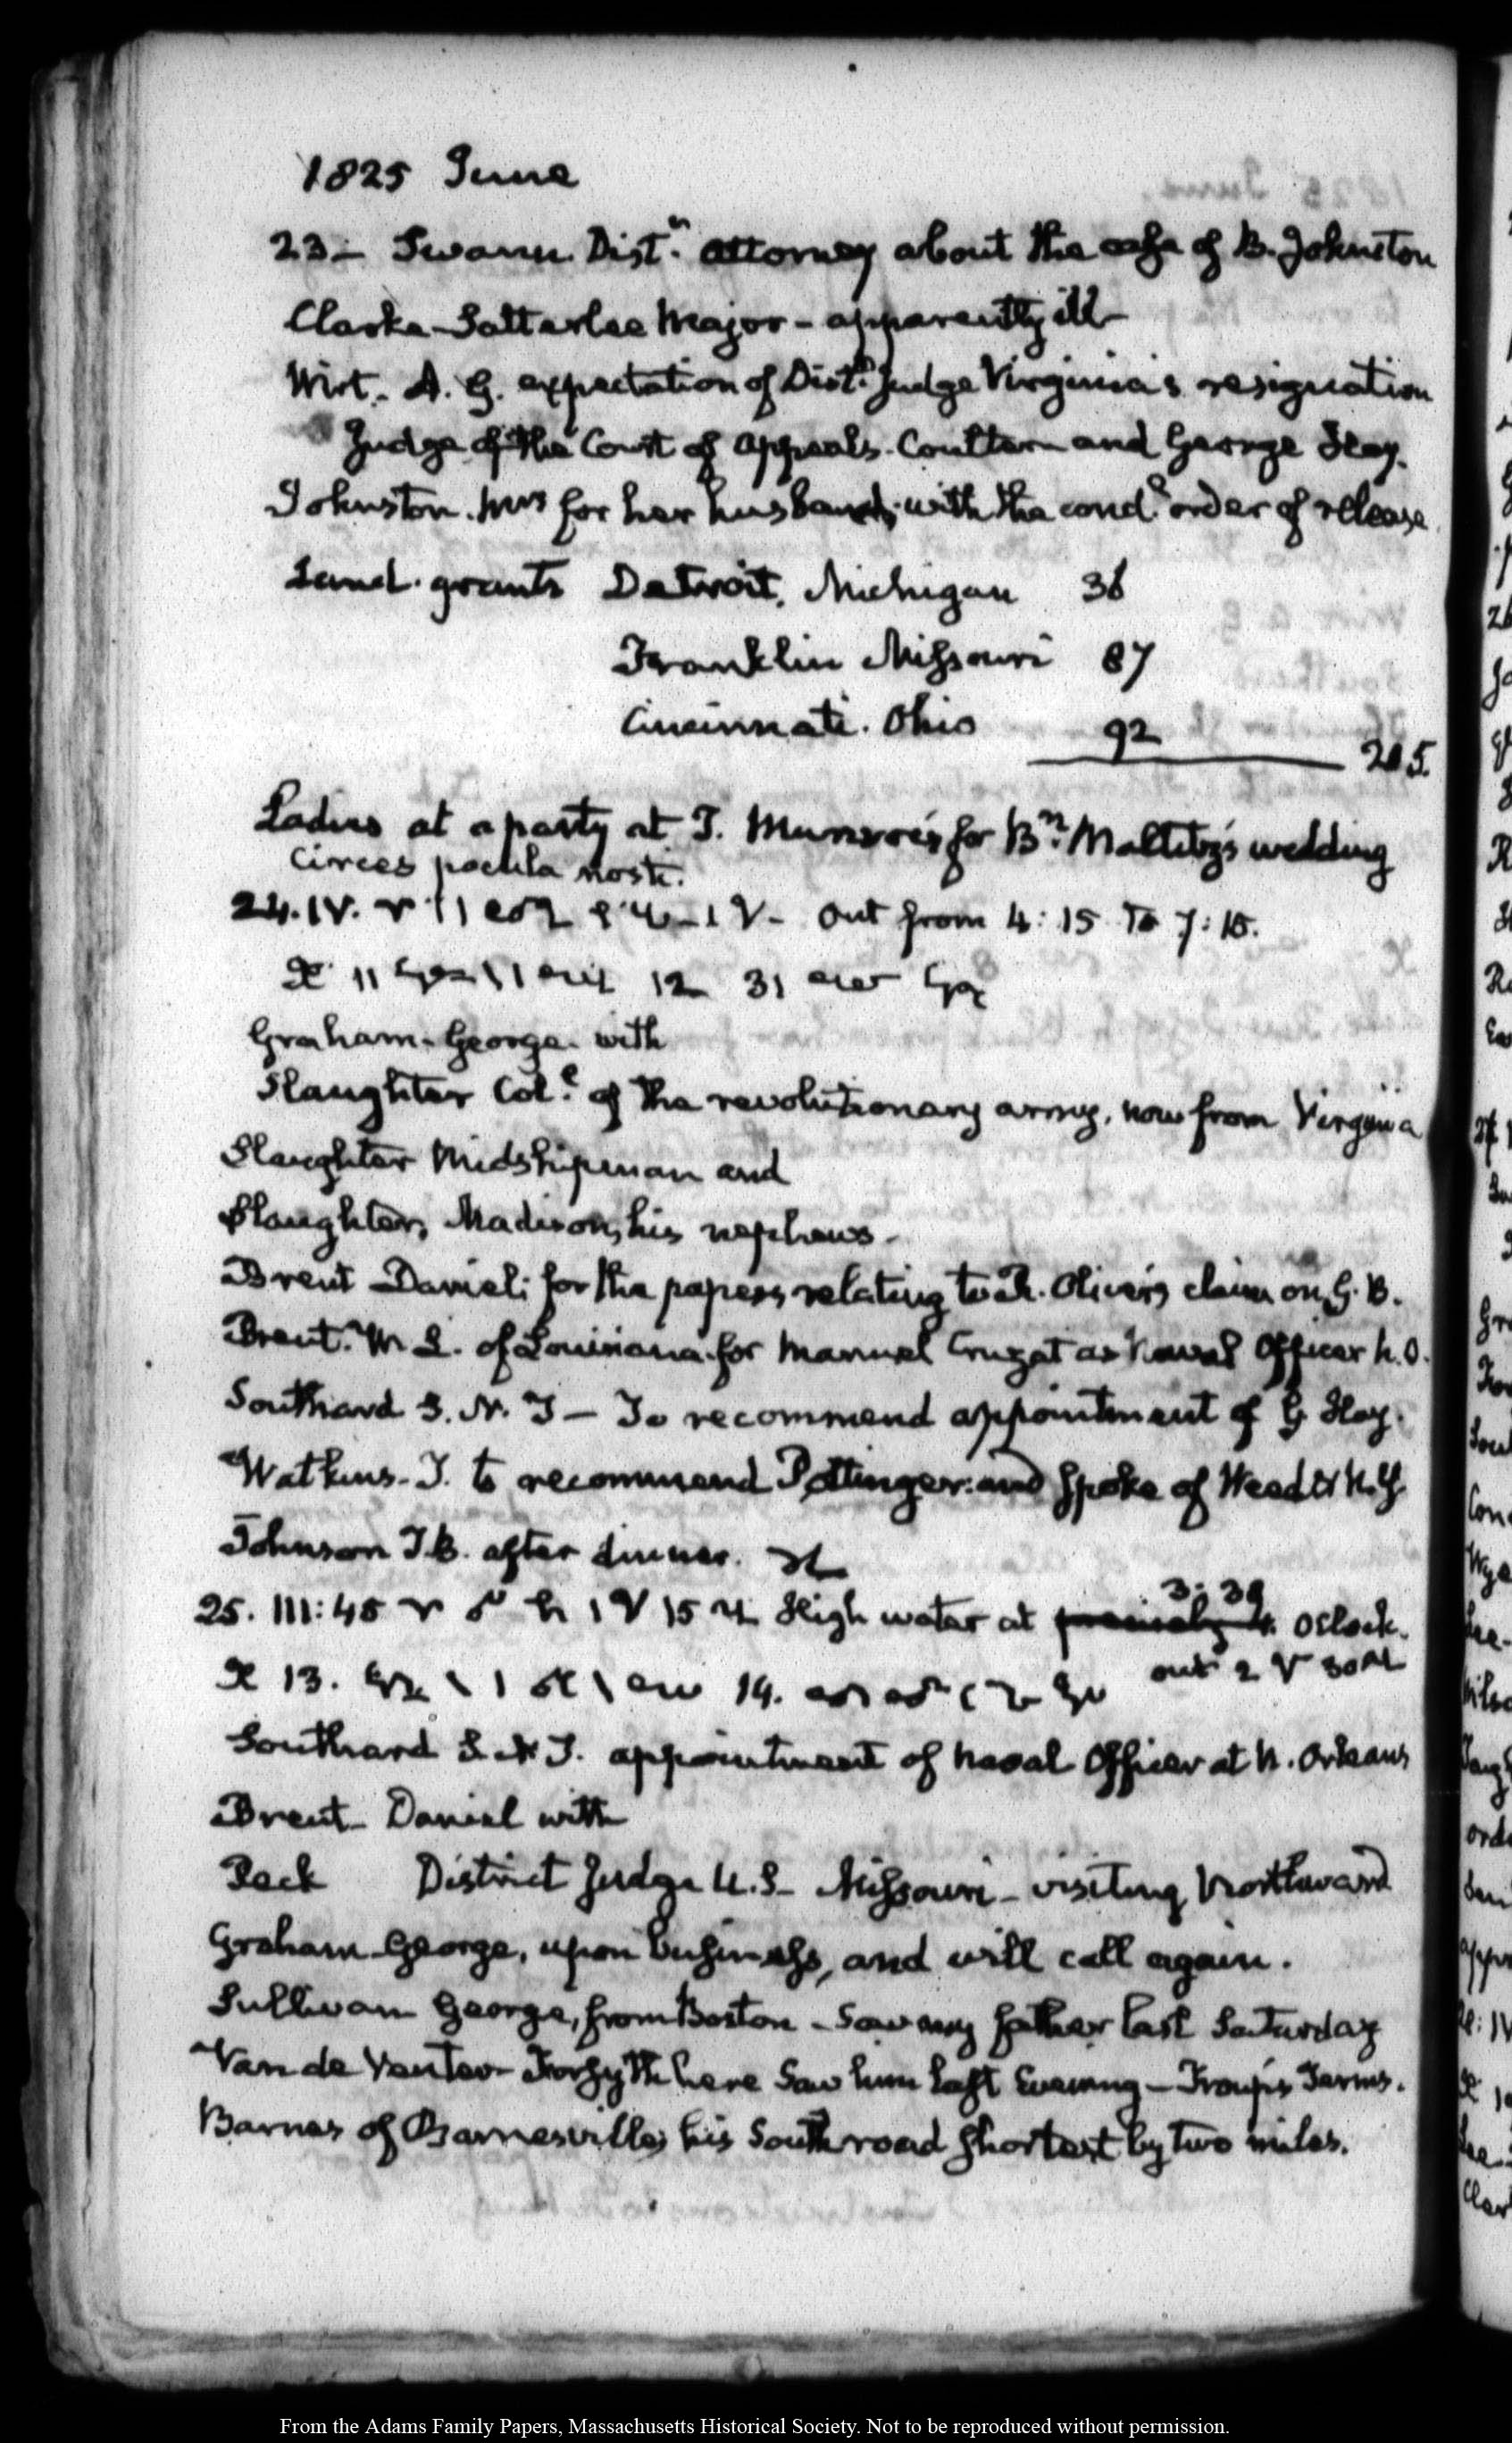 1825 June
23 – Swann. Dist.n attorney about the case of B. Johnston
Clarke Satterlee Major – apparently ill
Wirt. A. G. expectation of Dist.t Judge Virginia's resignation
Judge of the Court of Appeals. Coulter and George Hay.
Johnston. Mrs for her husband; with the cond.l order of release
Land grants Detroit, Michigan 36
Franklin Missouri 87
Cincinnati. Ohio 92
215.
Ladies at a party at T. Munroe's for Bn. Maltby's wedding
Circes pocula nosti.
24. IV. out from 4:15 To 7:15.
11 12 31
Graham. George. with
Slaughter Col.l of the revolutionary army, now from Virginia
Slaughter Midshipman and
Slaughter, Madison, his nephews.
Brent Daniel: for the papers relating to R. Oliver's claim on G. B.
Brent. W. L. of Louisiana for Manuel Cruzat as Naval Officer N. O.
Southard S. N. J – To recommend appointment of G Hay.
Watkins. T. to recommend Pottinger: and spoke of Weed N. Y
Johnson J. B. after dinner.
25. III:45 15 High water at precisely 4. 3:39 oClock.
13. 14. out 2
Southard S. N J. appointment of Naval Officer at N. Orleans
Brent – Daniel with
Peck District Judge U.S – Missouri – visiting Northward
Graham George, upon business, and will call again.
Sullivan George, from Boston – saw my father last Saturday
Van de Venter Forsyth here saw him last Evening – Troup's Terms.
Barnes of Barnesville; his South road shortest by two miles.
From the Adams Family Papers, Massachusetts Historical Society. Not to be reproduced without permission.